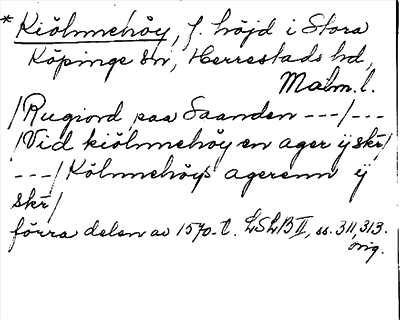 * Kiölnnehöy, f. höjd i Stora
Köpinge sn, Herrestads hd,
Malm. l.
/Rugiord paa Saanden ---/---
/Vid kiölnnehöy en ager ÿ skr/
---/Kölnnehöys agerenn ÿ
skr/
förra delen av 1570-t. LSLB II, ss. 311, 313.
orig.